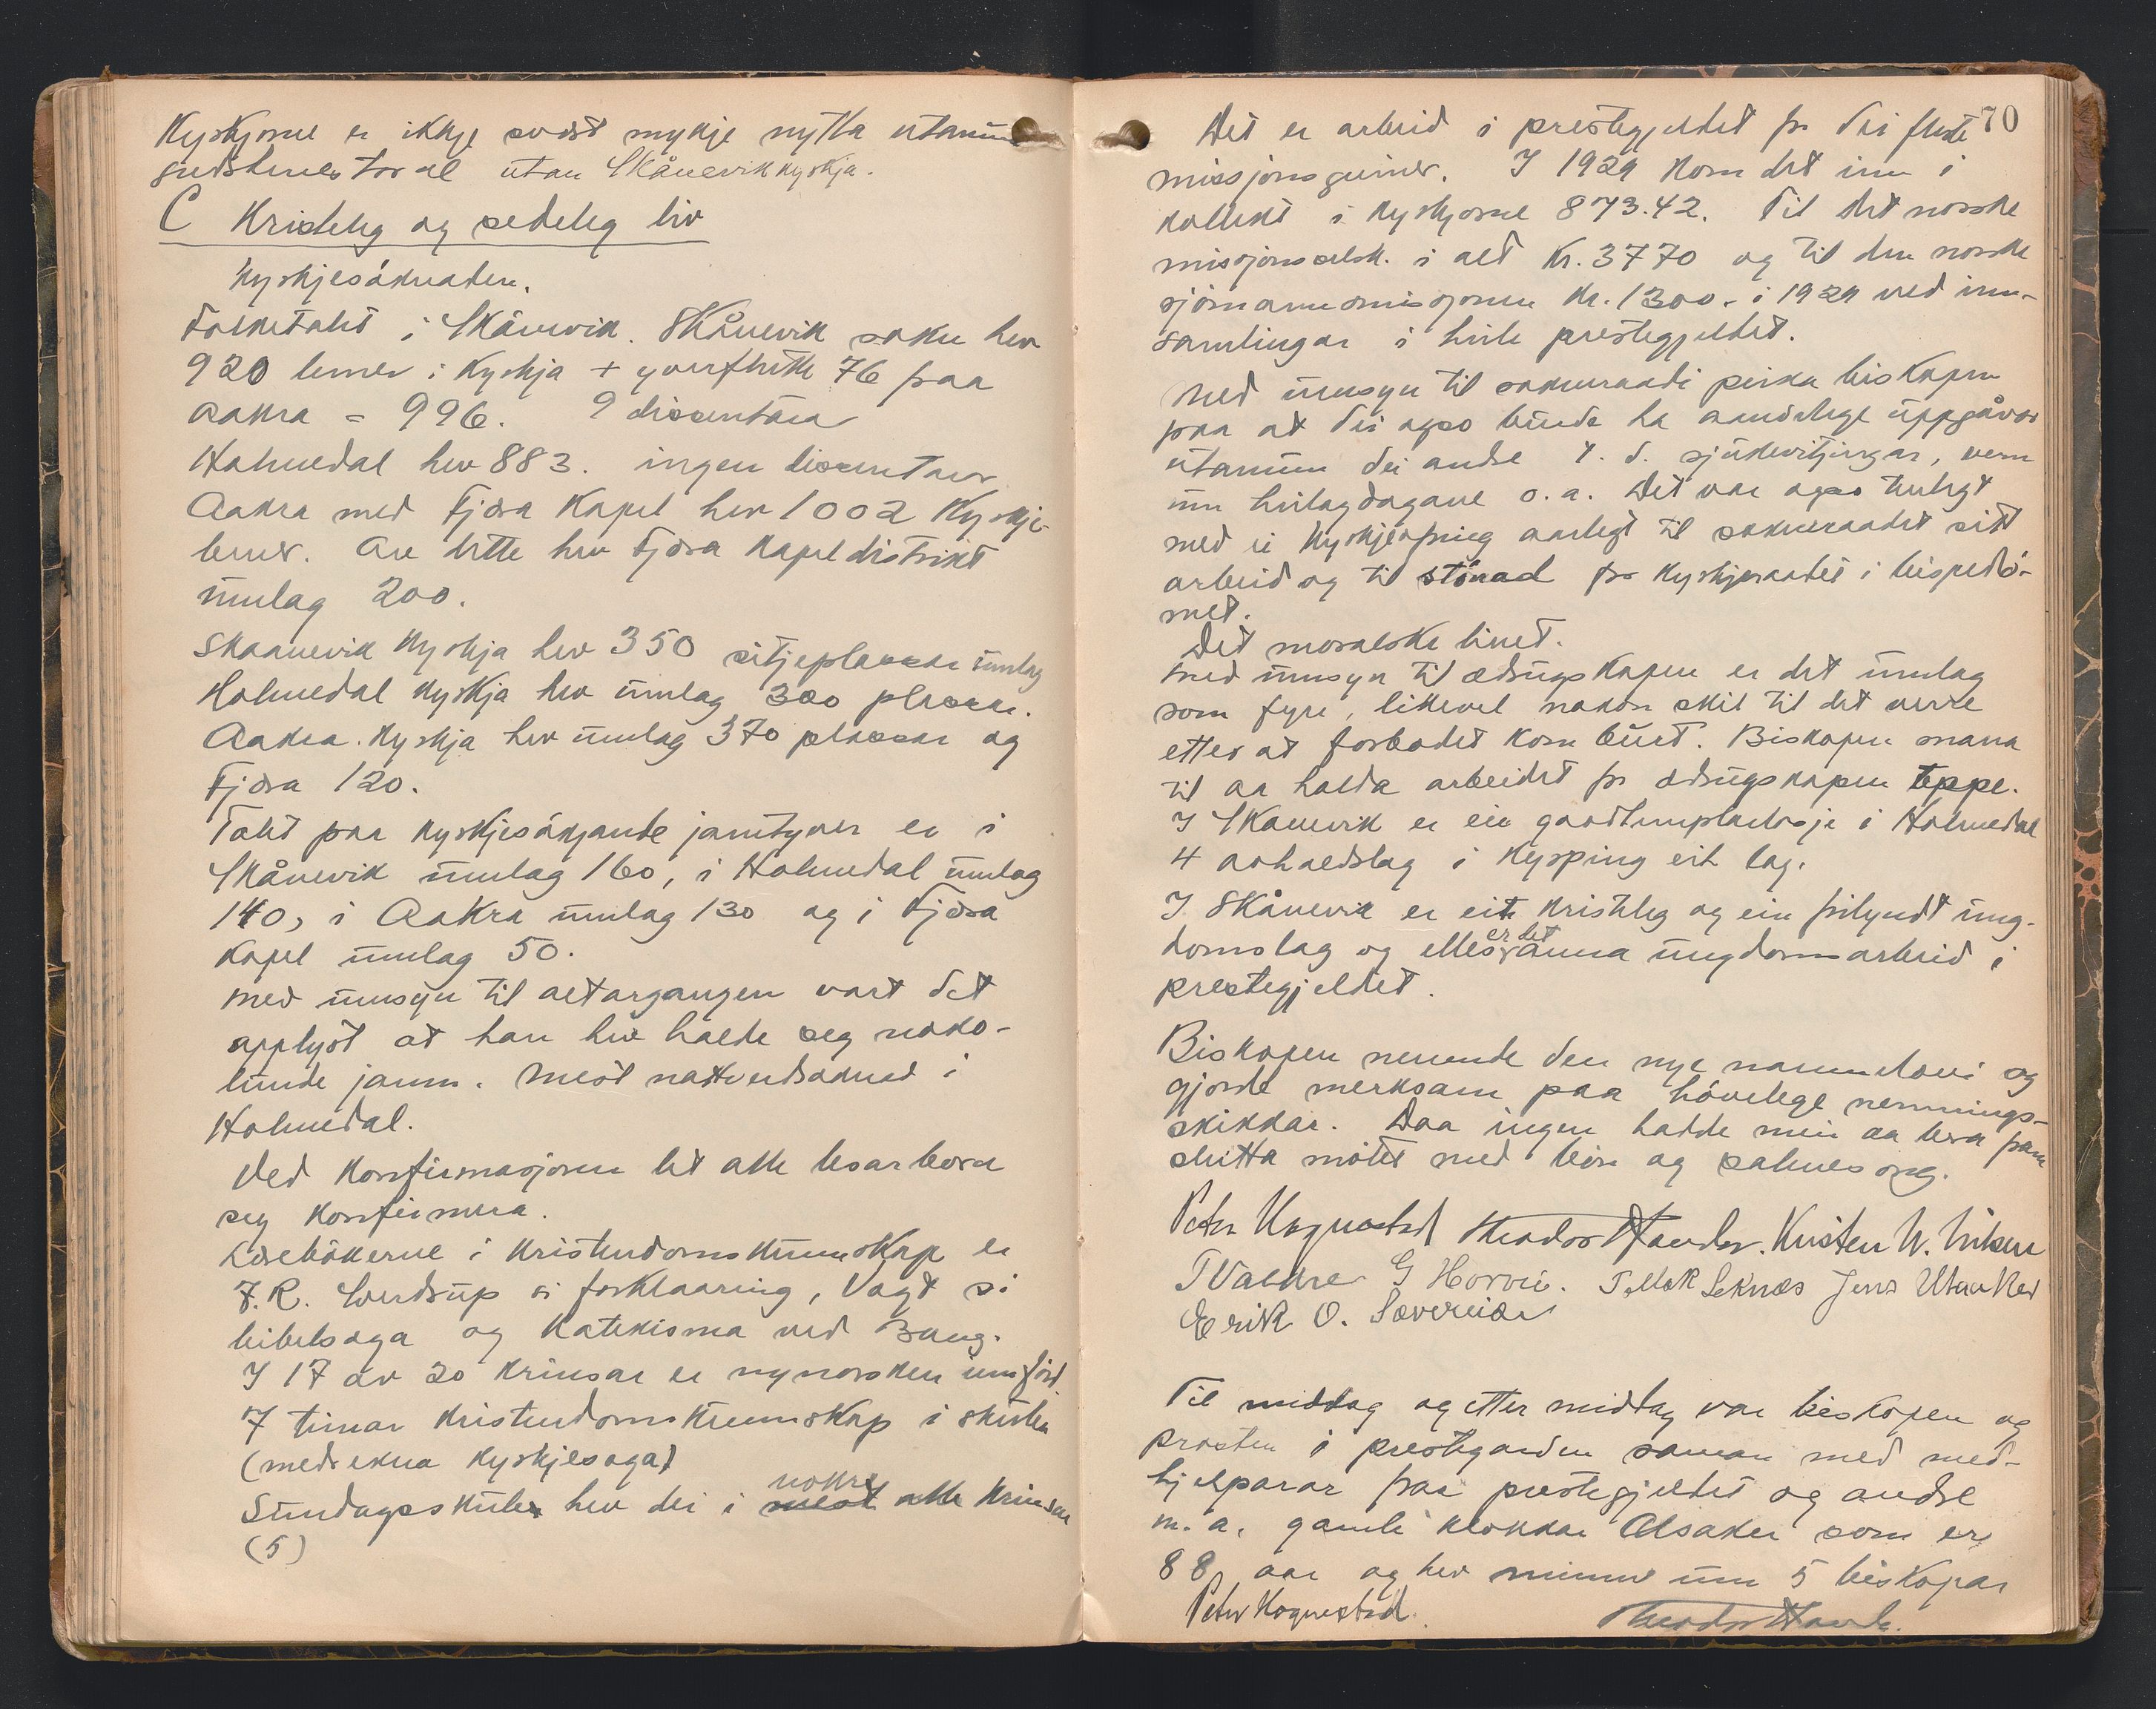 Kyrkjorne er ikkje svært mykje nytta utanum
gudstenestor al utan Skånevik kyrkja.
C Kristeleg og sedeleg liv
Kyrkjesóknaden.
Folketalet i Skånevik. Skånevik sokn hev
920 lemer i Kyrkja + yverflutte 76 fraa
Aakra = 996. 9 dissentara
Holmedal hev 883. ingen dissentarar
Aakra med Fjæra Kapel hev 1002 Kyrkje-
lemer. Av dette hev Fjæra Kapeldistrikt
umlag 200.
Skaanevik Kyrkja hev 350 sitjeplassar umlag
Holmedal Kyrkja hev umlag 300 plassar.
Aakra Kyrkja hev umlag 370 plassar og
Fjæra 120.
Talet paa Kyrkjesókjande jamtyver er i
Skånevik umlag 160, i Holmedal umlag
140, i Aakra umlag 130 og i Fjæra
Kapel umlag 50.
Med umsyn til altargangen vart det
upplyst at han hev halde seg noko-
lunde jamn. Mest nattverdsóknad i
Holmedal.
Ved Konfirmasjonen let alle lesarborn
seg Konfirmera.
Lærebókerne i Kristendomskunnskap er
J. R. Sverdrup si forklaaring, Vogt si
bibelsoga og Katekisma ved Bang.
I 17 av 20 Krinsar er nynorsken innførd.
7 timar Kristendomskunnskap i skulen
(medrekna Kyrkjesoga)
nokre
Sundagsskular hev dei i mest alle Krinsar
(5)
70
Det er arbeid i prestegjeldet fr dei fleste
missjonsgreiner. I 1929 kom det inn i
kollekt i Kyrkjorne 873.42. Til det norske
misjonsselsk. i alt Kr. 3770 og til den norske
sjómannsmisjonen Kr. 1300.- i 1929 ved inn-
samlingar i heile prestegjeldet.
Med umsyn til sokneraadi peika biskopen
paa at dei ogso burde ha aandelege uppgåvor
utanum dei andre t. d. sjukevitjingar, vern
um heilagdagane o. a. Det var ogso tenlegt
med ei Kyrkjeofring aarlegt til sokneraadet sitt
arbeid og til stónad fr Kyrkjeraadet i bispedó-
met.
Det moralske livet.
Med umsyn til ædrugskapen er det umlag
som fyre, likevel nokon skil til det verre
etter at forbodet kom burt. Biskopen mana
til aa halda arbeidet fr ædrugskapen uppe.
I Skånevik er ein goodtemplarlosje i Holmedal
4 avhaldslag i Kyrping eit lag.
I Skånevik er eit Kristeleg og ein frilyndt ung-
er det
domslag og elles anna ungdomsarbeid i
prestegjeldet.
Biskopen nemnde den nye namnelovi og
gjorde merksam paa hóvelege nemnings-
skikkar. Daa ingen hadde meir aa bera fram
slutta mótet med bón og salmesong.
Peter Hognestad Theodor Hander. Kristen W. Viken
T Valdre G Horvei. T. Mok Leknes Jens Utaaker
Erik O. Sævereide
Til middag og etter middag var biskopen og
prosten i prestegarden saman med med-
hjelparar fraa prestegjeldet og andre
m. a. gamle klokkar Alsaker som er
88 aar og hev minne um 5 biskopar
Peter Hognestad. Theodor Hander.